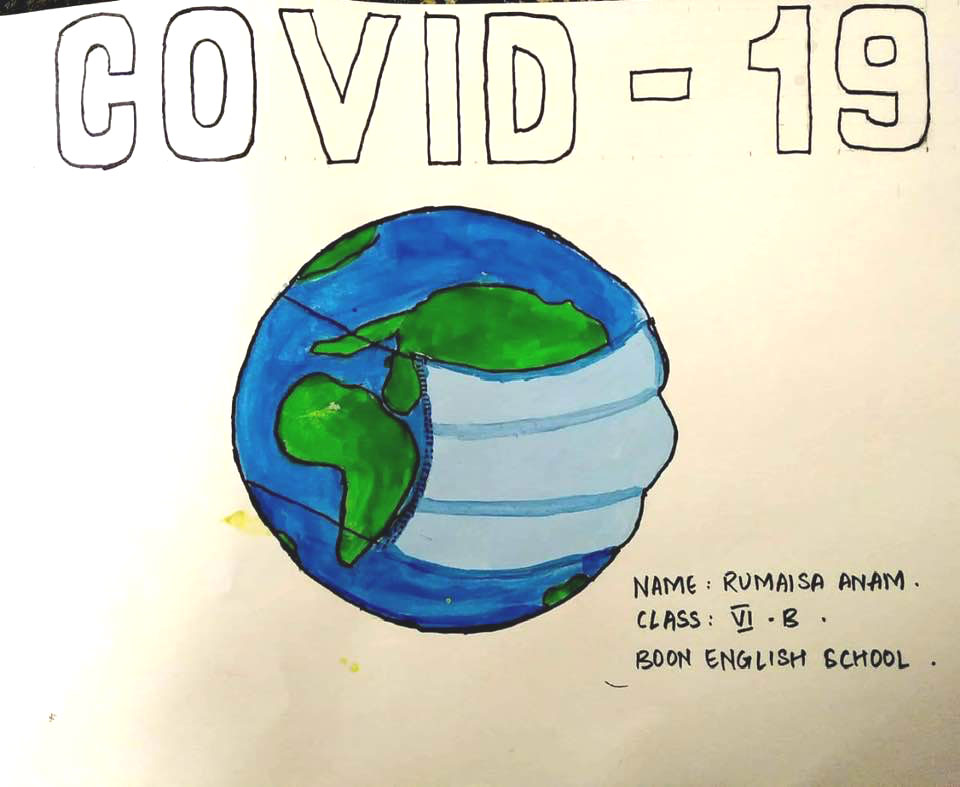 COVID - 19
NAME : RUMAISA ANAM .
CLASS : VI · B .
BOON ENGLISH SCHOOL .